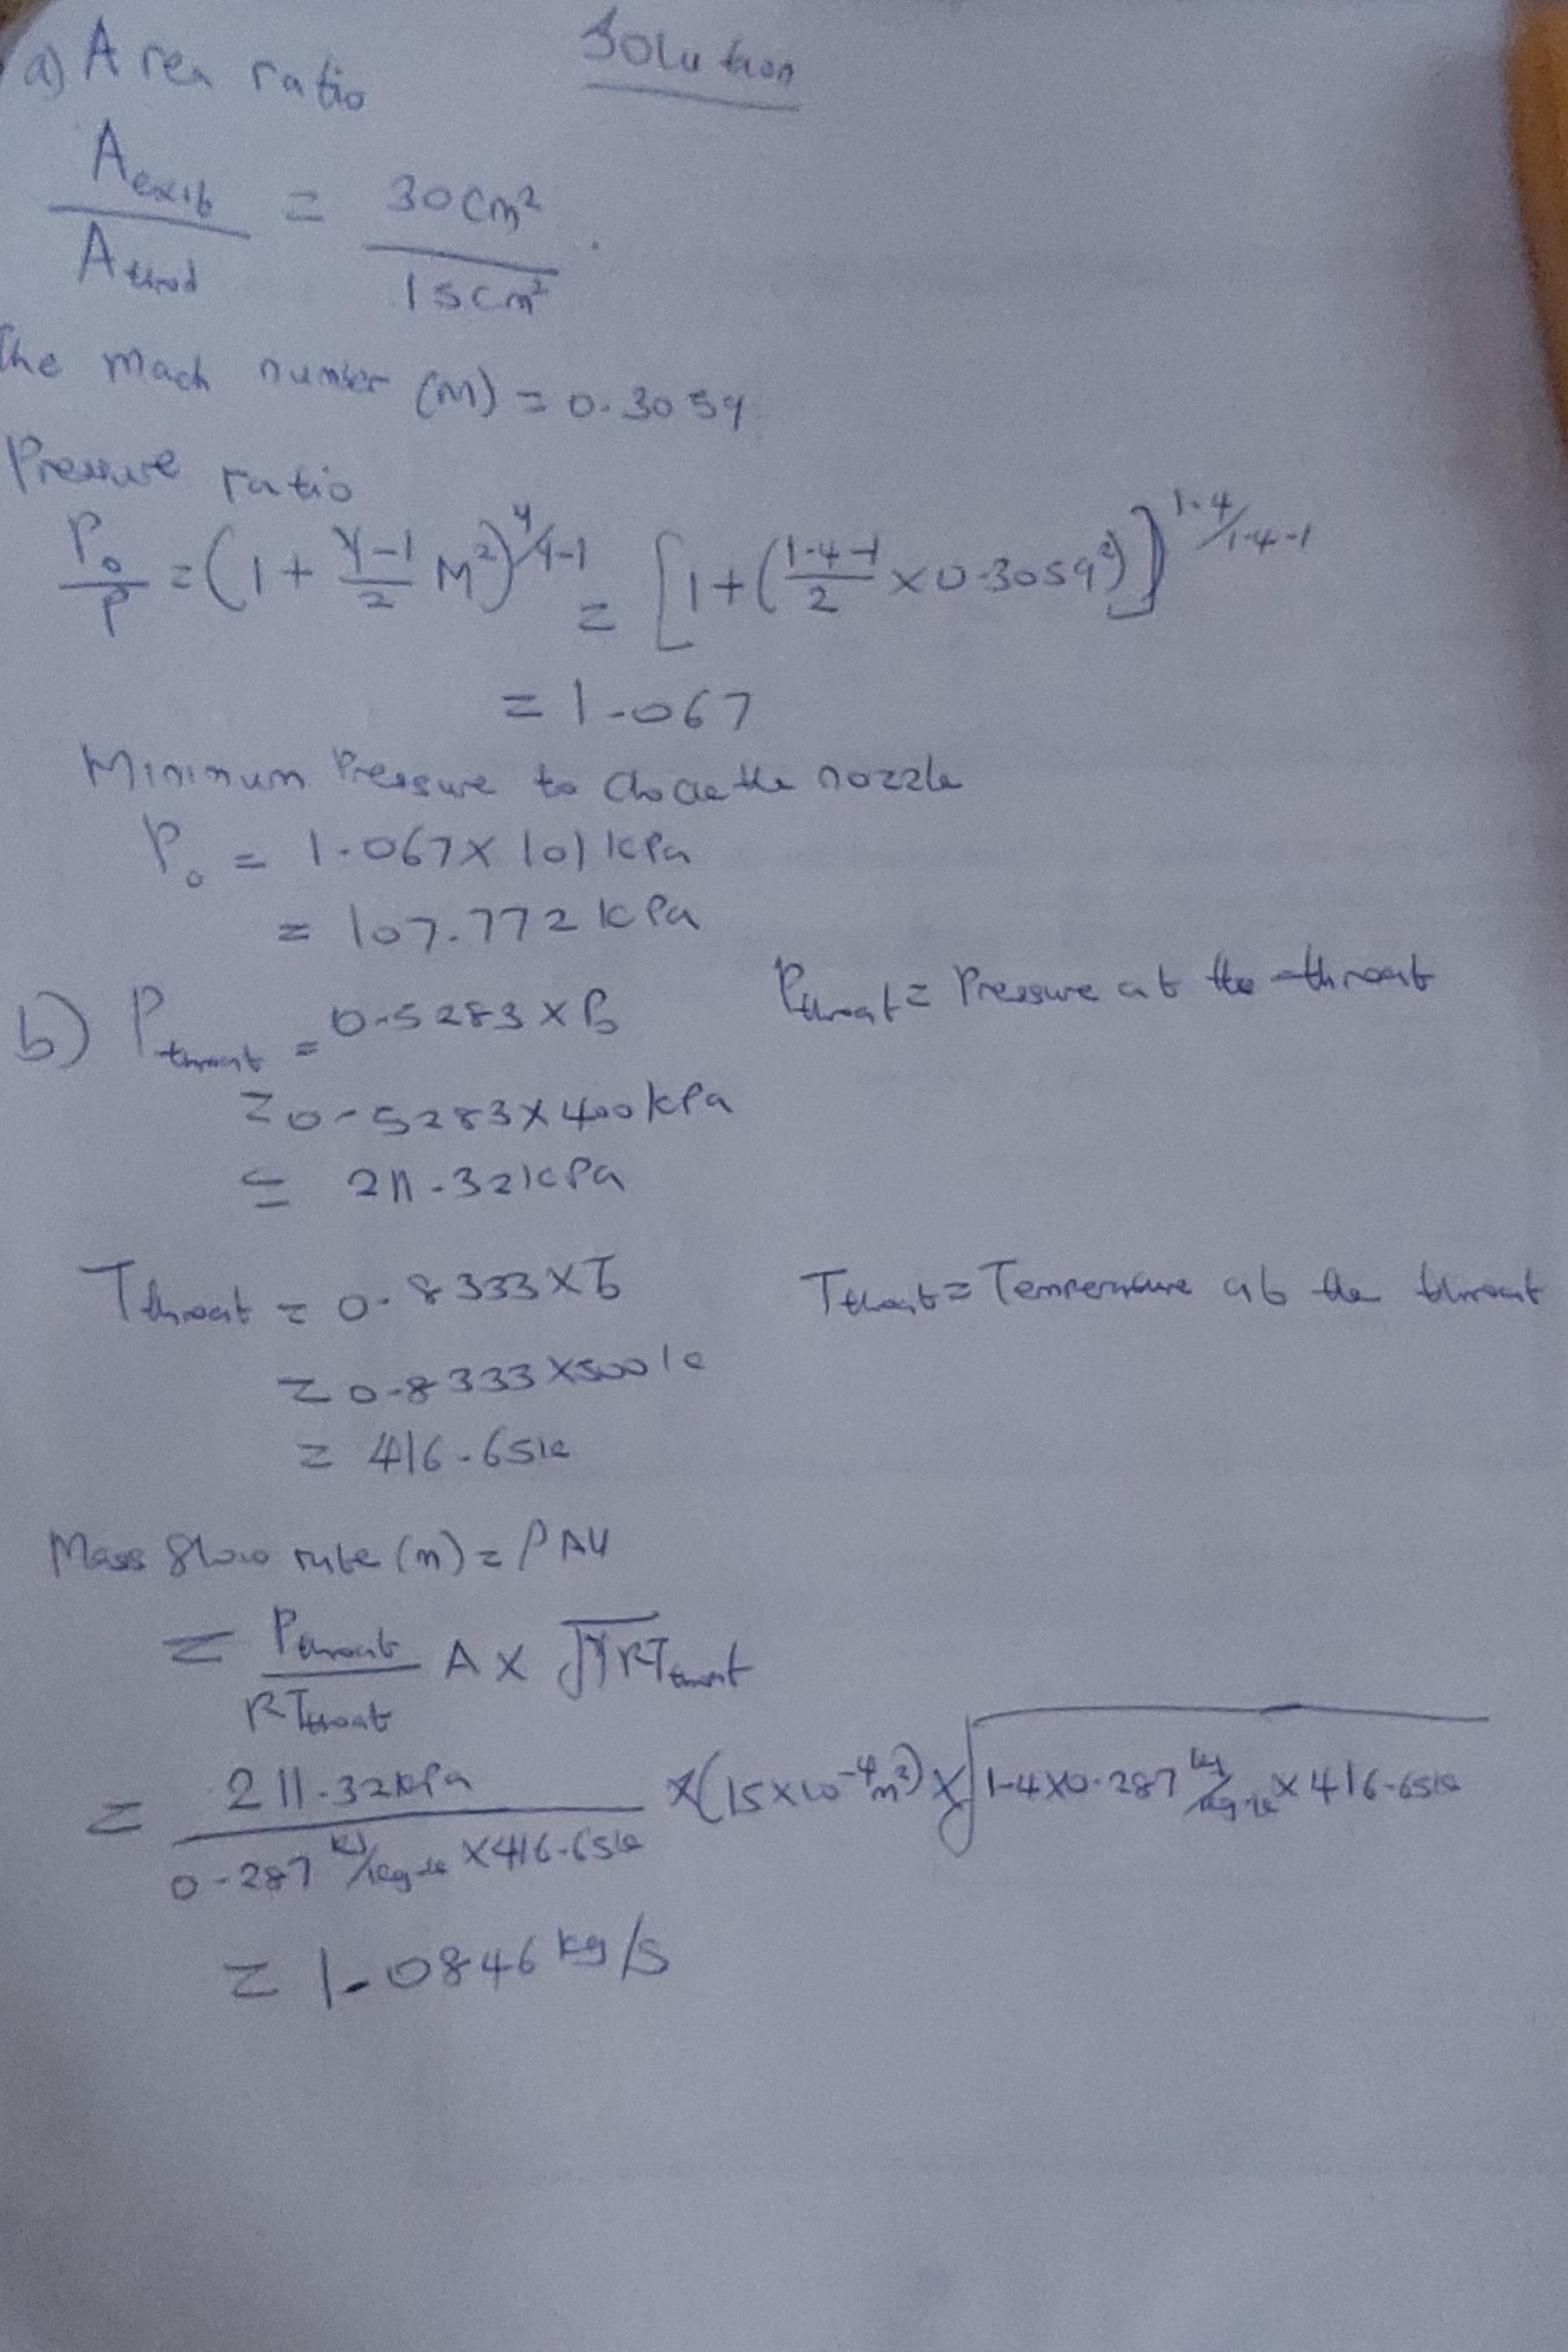 Solution
a) Area ratio
A exit / A throat = 30cm² / 15cm²
The Mach number (M) = 0.3059
Pressure ratio
P₀/P = (1 + γ-1/2 M²)^γ/γ-1 = [1 + (1.4-1/2 × 0.3059²)]^1.4/1.4-1
= 1.067
Minimum Pressure to choke the nozzle
P₀ = 1.067 × 101 kPa
= 107.772 kPa
b) P throat = 0.5283 × P₀ P throat = Pressure at the throat
= 0.5283 × 400 kPa
= 211.32 kPa
T throat = 0.8333 × T₀ T throat = Temperature at the throat
= 0.8333 × 500 k
= 416.65 k
Mass flow rate (m) = ρAV
= P throat / RT throat A × √γRT throat
= 211.32 kPa / 0.287 kJ/kg-k × 416.65k × (15 × 10⁻⁴m²) × √1.4 × 0.287 kJ/kg-k × 416.65k
= 1.0846 kg/s